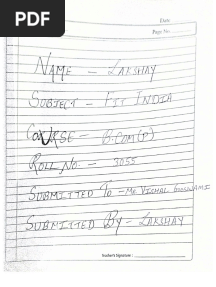 PDF
Date
Page No.
NAME - LAKSHAY
SUBJECT - FIT INDIA
COURSE - B.COM(P)
ROLL NO. - 3055
SUBMITTED TO - MR. VISHAL GOSWAMI
SUBMITTED BY - LAKSHAY
Teacher's Signature :